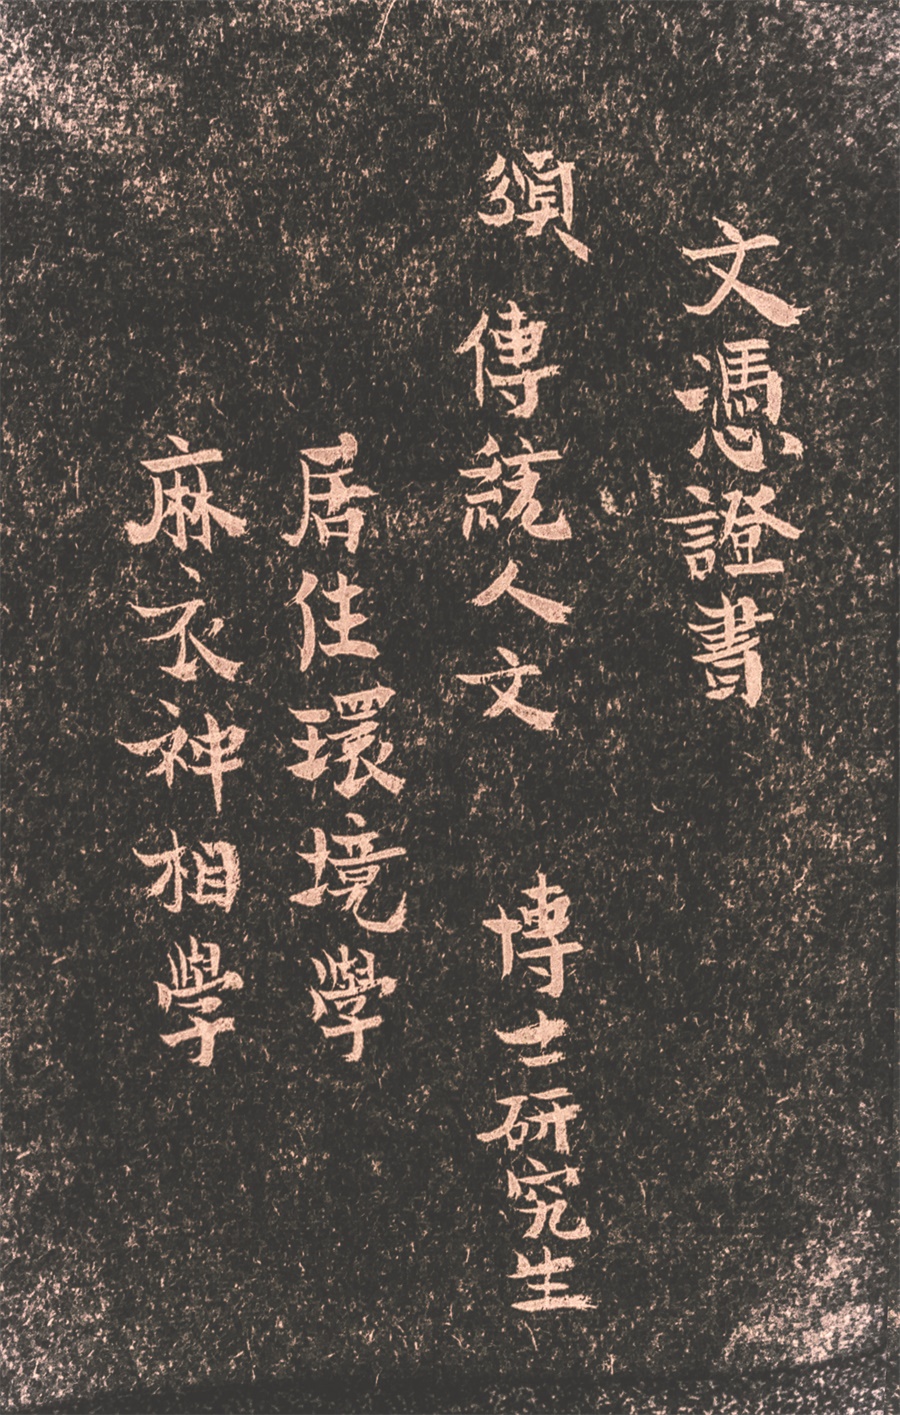 文憑證書
須 傳統人文 博士研究生
居住環境學
麻衣神相學